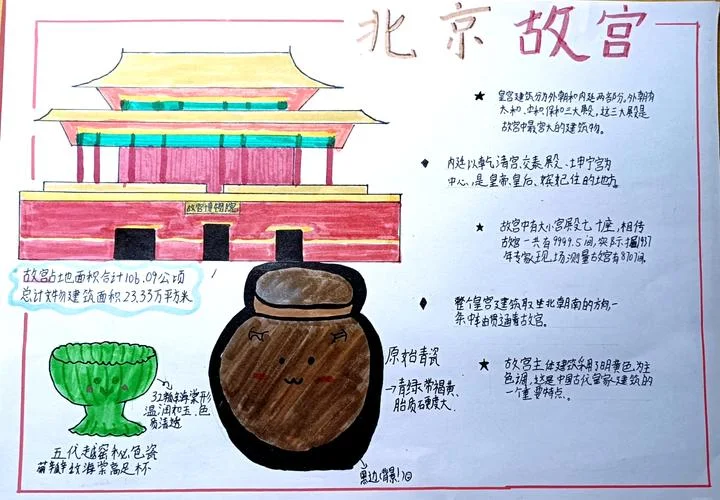 北京故宫
★ 皇宫建筑分为外朝和内廷两部分。外朝有
太和、中和、保和三大殿，这三大殿是
故宫中最宫大的建筑物。
◆ 内廷以乾清宫、交泰殿、坤宁宫为
中心，是皇帝、皇后、嫔妃住的地方。
★ 故宫中有大小宫殿七十座，相传
故宫一共有9999.5间，实际据1937
年专家现场测量故宫有8707间。
◆ 整个皇宫建筑取坐北朝南的方向，一
条中轴贯通着故宫。
★ 故宫主体建筑采用了明黄色为主
色调，这是中国古代皇家建筑的
一个重要特点。
故宫博物院
故宫占地面积合计106.09公顷
总计文物建筑面积23.33万平方米
海棠形
温润如玉，色
五代越窑秘色瓷
海棠高足杯
原始青瓷
→青绿带褐黄，
胎质硬度大.
黑边(背景!)